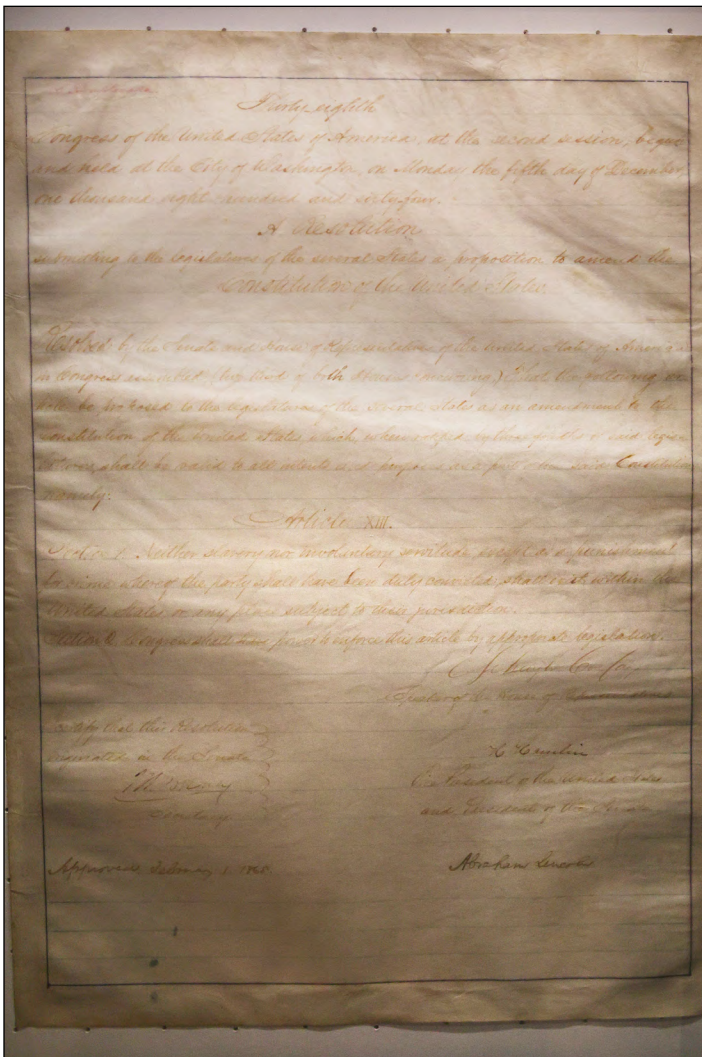 Thirty-eighth
Congress of the United States of America, at the second session, begun
and held at the City of Washington, on Monday the fifth day of December,
one thousand eight hundred and sixty-four.
A Resolution
submitting to the legislatures of the several States a proposition to amend the
Constitution of the United States.
Resolved by the Senate and House of Representatives of the United States of America
in Congress assembled, (two thirds of both Houses concurring,) That the following
be proposed to the legislatures of the several States as an amendment to the
Constitution of the United States, which, when ratified by three fourths of said
shall be valid, to all intents and purposes, as a part of the said Constitution
namely:
Article XIII.
Section 1. Neither slavery nor involuntary servitude, except as a punishment
for crime whereof the party shall have been duly convicted, shall exist within the
United States, or any place subject to their jurisdiction.
Section 2. Congress shall have power to enforce this article by appropriate legislation.
Schuyler Colfax
Speaker of the House of Representatives
certify that this Resolution
originated in the Senate
H. Hamlin
Secretary
Vice President of the United States
and President of the Senate
Approved, February 1. 1865.
Abraham Lincoln